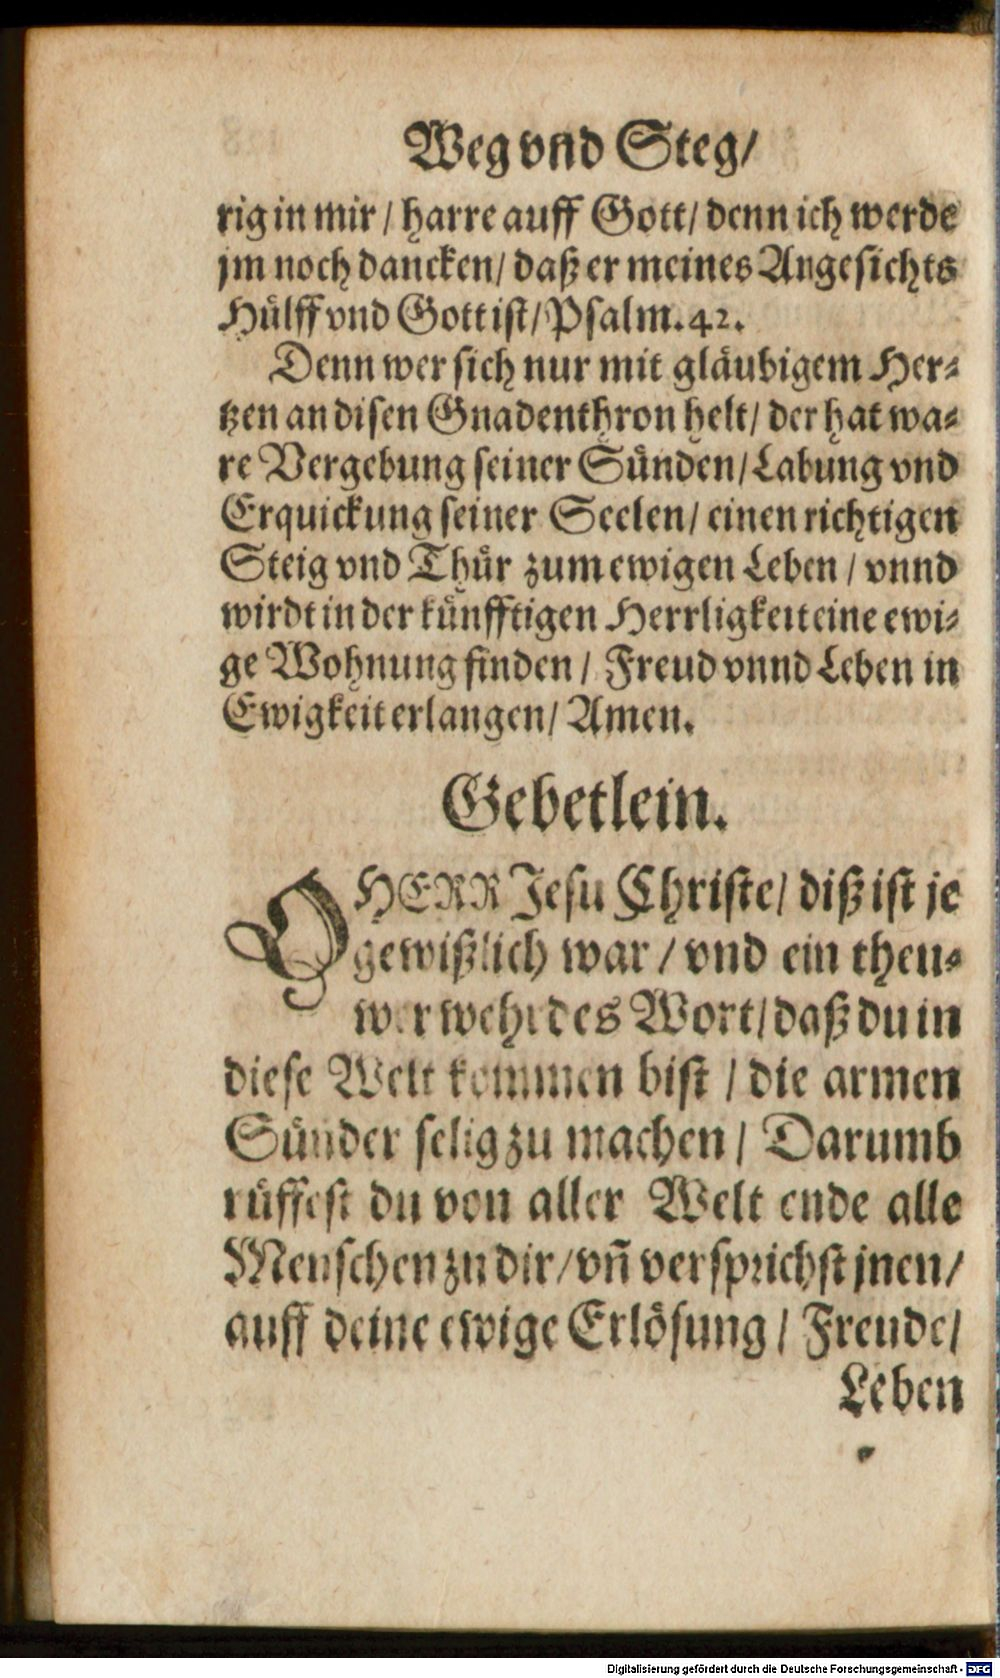 Weg vnd Steg/
rig in mir / harre auff Gott / denn ich werde
jm noch dancken / daß er meines Angesichts
Huͤlff vnd Gott ist / Psalm. 42.
Denn wer sich nur mit glaͤubigem Her⸗
tzen an disen Gnadenthron helt / der hat wa⸗
re Vergebung seiner Suͤnden / Labung vnd
Erquickung seiner Seelen / einen richtigen
Steig vnd Thuͤr zum ewigen Leben / vnnd
wirdt in der kuͤnfftigen Herrligkeit eine ewi⸗
ge Wohnung finden / Freud vnnd Leben in
Ewigkeit erlangen / Amen.
Gebetlein.
O HERR Jesu Christe / diß ist je
gewißlich war / vnd ein theu⸗
wer wehrdes Wort / daß du in
diese Welt kommen bist / die armen
Suͤnder selig zu machen / Darumb
ruͤffest du von aller Welt ende alle
Menschen zu dir / vn̄ versprichst jnen /
auff deine ewige Erloͤsung / Freude /
Leben
Digitalisierung gefördert durch die Deutsche Forschungsgemeinschaft - DFG